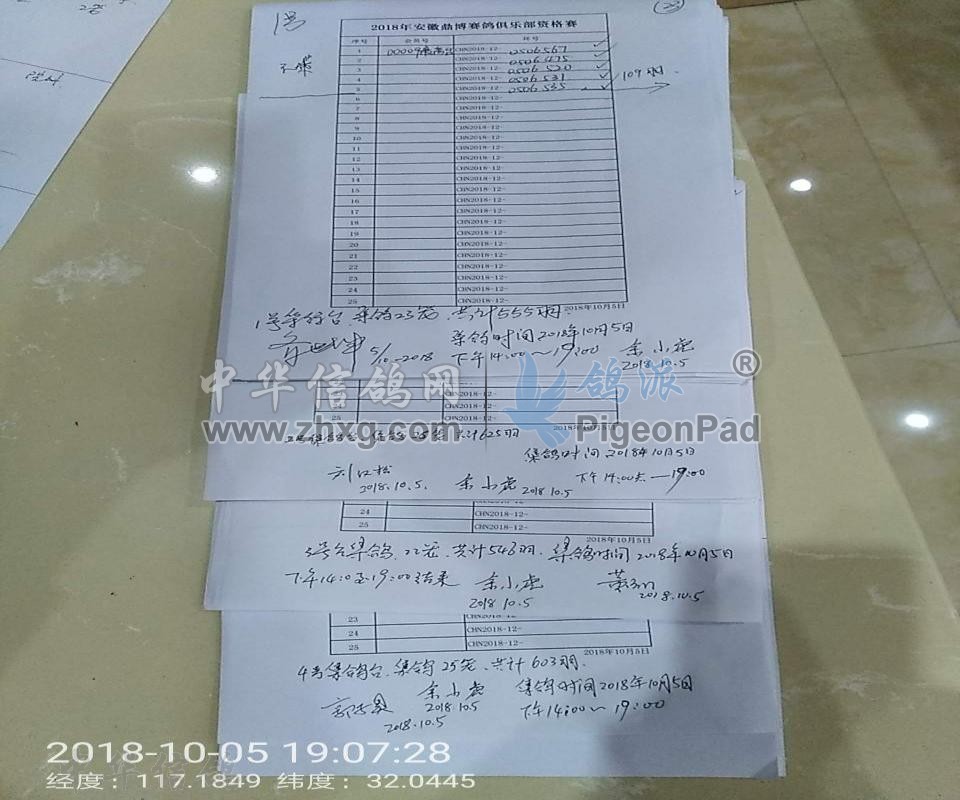 1号
23
2018年安徽鼎博赛鸽俱乐部资格赛
序号 会员号 环号
1 00009 CHN2018-12- 0506567 ✓
2 CHN2018-12- 0506475
3 CHN2018-12- 0506520 ✓
4 CHN2018-12- 0506531 ✓
5 CHN2018-12- 0506535 ✓
109羽
6 CHN2018-12-
7 CHN2018-12-
8 CHN2018-12-
9 CHN2018-12-
10 CHN2018-12-
11 CHN2018-12-
12 CHN2018-12-
13 CHN2018-12-
14 CHN2018-12-
15 CHN2018-12-
16 CHN2018-12-
17 CHN2018-12-
18 CHN2018-12-
19 CHN2018-12-
20 CHN2018-12-
21 CHN2018-12-
22 CHN2018-12-
23 CHN2018-12-
24 CHN2018-12-
25 CHN2018-12-
2018年10月5日
1号集鸽台,集鸽23笼,共计555羽
集鸽时间2018年10月5日
5/10-2018 下午14:00~19:00 余小虎
2018.10.5
中华信鸽网 鸽派®
www.zhxg.com PigeonPad
24 CHN2018-12-
25 CHN2018-12-
2018年10月5日
2号集鸽台 集鸽25笼 共计625羽
集鸽时间2018年10月5日
刘江松 余小虎 下午14:00点—19:00
2018.10.5. 2018.10.5
24 CHN2018-12-
25 CHN2018-12-
2018年10月5日
3号台集鸽,22笼,共计546羽,集鸽时间2018年10月5日
下午14:0至19:00结束 余小虎
2018.10.5 2018.10.5
23 CHN2018-12-
24 CHN2018-12-
25 CHN2018-12-
2018年10月5日
4号集鸽台,集鸽25笼,共计603羽.
余小虎 集鸽时间2018年10月5日
2018.10.5 下午14:00~19:00
2018.10.5
2018-10-05 19:07:28
经度: 117.1849 纬度: 32.0445
中华信鸽